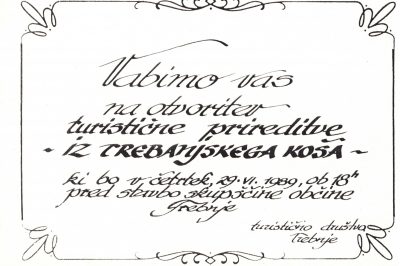 Vabimo vas
na otvoritev
turistične prireditve
- IZ TREBANJSKEGA KOŠA -
ki bo v četrtek, 29. VI. 1989, ob 18h
pred stavbo skupščine občine
Trebnje
turistično društvo
Trebnje